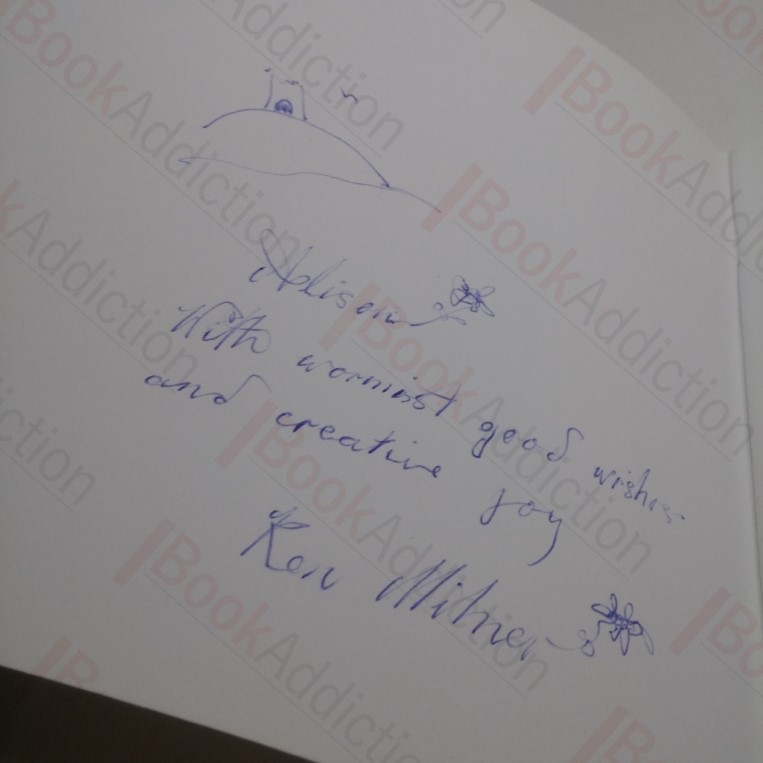 Alison
With warmest good wishes
and creative joy
Ken Milner
BookAddiction
BookAddiction
BookAddiction
BookAddiction
BookAddiction
BookAddiction
BookAddiction
BookAddiction